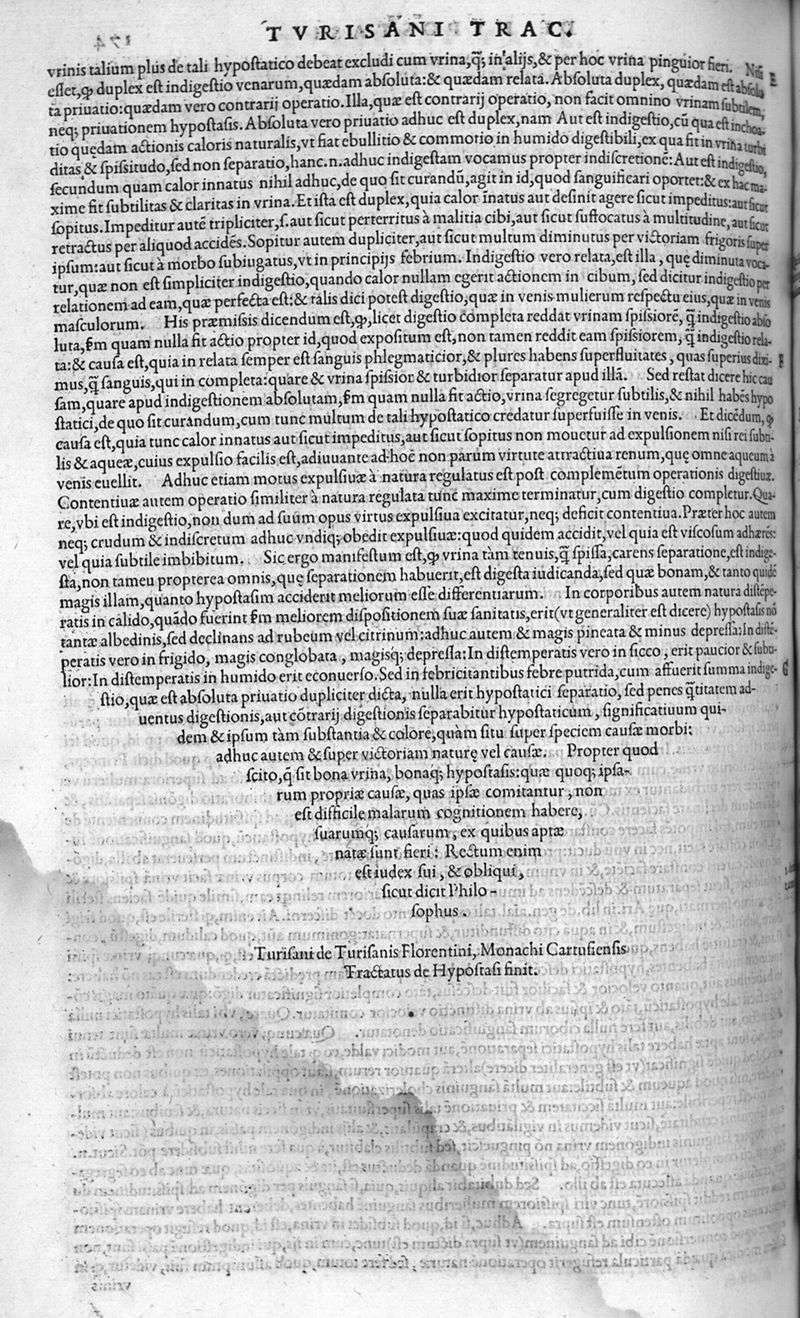 TVRISANI TRAC.
vrinis talium plus de tali hypoſtatico debeat excludi cum vrina, q̃; in alijs, & per hoc vrina pinguior fieri. Niſi
eſſet, ꝙ duplex eſt indigeſtio venarum, quædam abſoluta: & quædam relata. Abſoluta duplex, quædam eſt abſolu
ta priuatio: quædam vero contrarij operatio. Illa, quæ eſt contrarij operatio, non facit omnino vrinam ſubtilem,
neq; priuationem hypoſtaſis. Abſoluta vero priuatio adhuc eſt duplex, nam Aut eſt indigeſtio, cũ qua eſt inchoa
tio quędam actionis caloris naturalis, vt fiat ebullitio & commotio in humido digeſtibili, ex qua fit in vrina turbi
ditas & ſpiſsitudo, ſed non ſeparatio, hanc. n. adhuc indigeſtam vocamus propter indiſcretionẽ: Aut eſt indigeſtio,
ſecundum quam calor innatus nihil adhuc, de quo ſit curandũ, agit in id, quod ſanguificari oportet: & ex hac ma-
xime fit ſubtilitas & claritas in vrina. Et iſta eſt duplex, quia calor ĩnatus aut definit agere ſicut impeditus: aut ſicut
ſopitus. Impeditur autẽ tripliciter, ſ. aut ſicut perterritus à malitia cibi, aut ſicut ſuffocatus à multitudine, aut ſicut
retractus per aliquod accidẽs. Sopitur autem dupliciter, aut ſicut multum diminutus per victoriam frigoris ſuper
ipſum: aut ſicut à morbo ſubiugatus, vt in principijs febrium. Indigeſtio vero relata, eſt illa, quę diminuta voca-
tur, quæ non eſt ſimpliciter indigeſtio, quando calor nullam egerit actionem in cibum, ſed dicitur indigeſtio per
relationem ad eam, quæ perfecta eſt: & talis dici poteſt digeſtio, quæ in venis mulierum reſpectu eius, quæ in venis
maſculorum. His præmiſsis dicendum eſt, ꝙ, licet digeſtio completa reddat vrinam ſpiſsiorẽ, q̃ indigeſtio abſo
luta, ẜm quam nulla fit actio propter id, quod expoſitum eſt, non tamen reddit eam ſpiſsiorem, q̃ indigeſtio rela-
ta: & cauſa eſt, quia in relata ſemper eſt ſanguis phlegmaticior, & plures habens ſuperfluitates, quas ſuperius dixi-
mus, q̃ ſanguis, qui in completa: quare & vrina ſpiſsior & turbidior ſeparatur apud illã. Sed reſtat dicere hic cau
ſam, quare apud indigeſtionem abſolutam, ẜm quam nulla fit actio, vrina ſegregetur ſubtilis, & nihil habẽs hypo
ſtatici, de quo ſit curandum, cum tunc multum de tali hypoſtatico credatur ſuperfuiſſe in venis. Et dicẽdum, ꝙ
cauſa eſt, quia tunc calor innatus aut ſicut impeditus, aut ſicut ſopitus non mouetur ad expulſionem niſi rei ſubti-
lis & aqueæ, cuius expulſio facilis eſt, adiuuante ad hoc nõ parum virtute attractiua renum, quę omne aqueum à
venis euellit. Adhuc etiam motus expulſiuæ à natura regulatus eſt poſt complemẽtum operationis digeſtiuæ.
Contentiuæ autem operatio ſimiliter à natura regulata tunc maxime terminatur, cum digeſtio completur. Qua-
re, vbi eſt indigeſtio, non dum ad ſuum opus virtus expulſiua excitatur, neq; deficit contentiua. Præter hoc autem
neq; crudum & indiſcretum adhuc vndiq; obedit expulſiuæ: quod quidem accidit, vel quia eſt viſcoſum adhærẽs:
vel quia ſubtile imbibitum. Sic ergo manifeſtum eſt, ꝙ vrina tàm tenuis, q̃ ſpiſſa, carens ſeparatione, eſt indige-
ſta, non tameu propterea omnis, quę ſeparationem habuerit, eſt digeſta iudicanda, ſed quæ bonam, & tanto quidẽ
magis illam, quanto hypoſtaſim acciderit meliorum eſſe differentiarum. In corporibus autem natura diſtẽpe-
ratis in calido, quãdo fuerint ẜm meliorem diſpoſitionem ſuæ ſanitatis, erit (vt generaliter eſt dicere) hypoſtaſis nõ
tantæ albedinis, ſed declinans ad rubeum vel citrinum: adhuc autem & magis pineata & minus depreſſa: In diſtẽ-
peratis vero in frigido, magis conglobata, magisq; depreſſa: In diſtemperatis vero in ſicco, erit paucior & ſubti-
lior: In diſtemperatis in humido erit econuerſo. Sed in febricitantibus febre putrida, cum affuerit ſumma indige-
ſtio, quæ eſt abſoluta priuatio dupliciter dicta, nulla erit hypoſtatici ſeparatio, ſed penes q̃titatem ad-
uentus digeſtionis, aut cõtrarij digeſtionis ſeparabitur hypoſtaticum, ſignificatiuum qui-
dem & ipſum tàm ſubſtantia & colore, quàm ſitu ſuper ſpeciem cauſæ morbi:
adhuc autem & ſuper victoriam naturę vel cauſæ. Propter quod
ſcito, q̃ ſit bona vrina, bonaq; hypoſtaſis: quæ quoq; ipſa-
rum propriæ cauſæ, quas ipſæ comitantur, non
eſt difficile malarum cognitionem habere,
ſuarumq; cauſarum, ex quibus aptæ
natæ ſunt fieri: Rectum enim
eſt iudex ſui, & obliqui,
ſicut dicit Philo-
ſophus.
Turiſani de Turiſanis Florentini, Monachi Cartuſienſis
Tractatus de Hypoſtaſi finit.